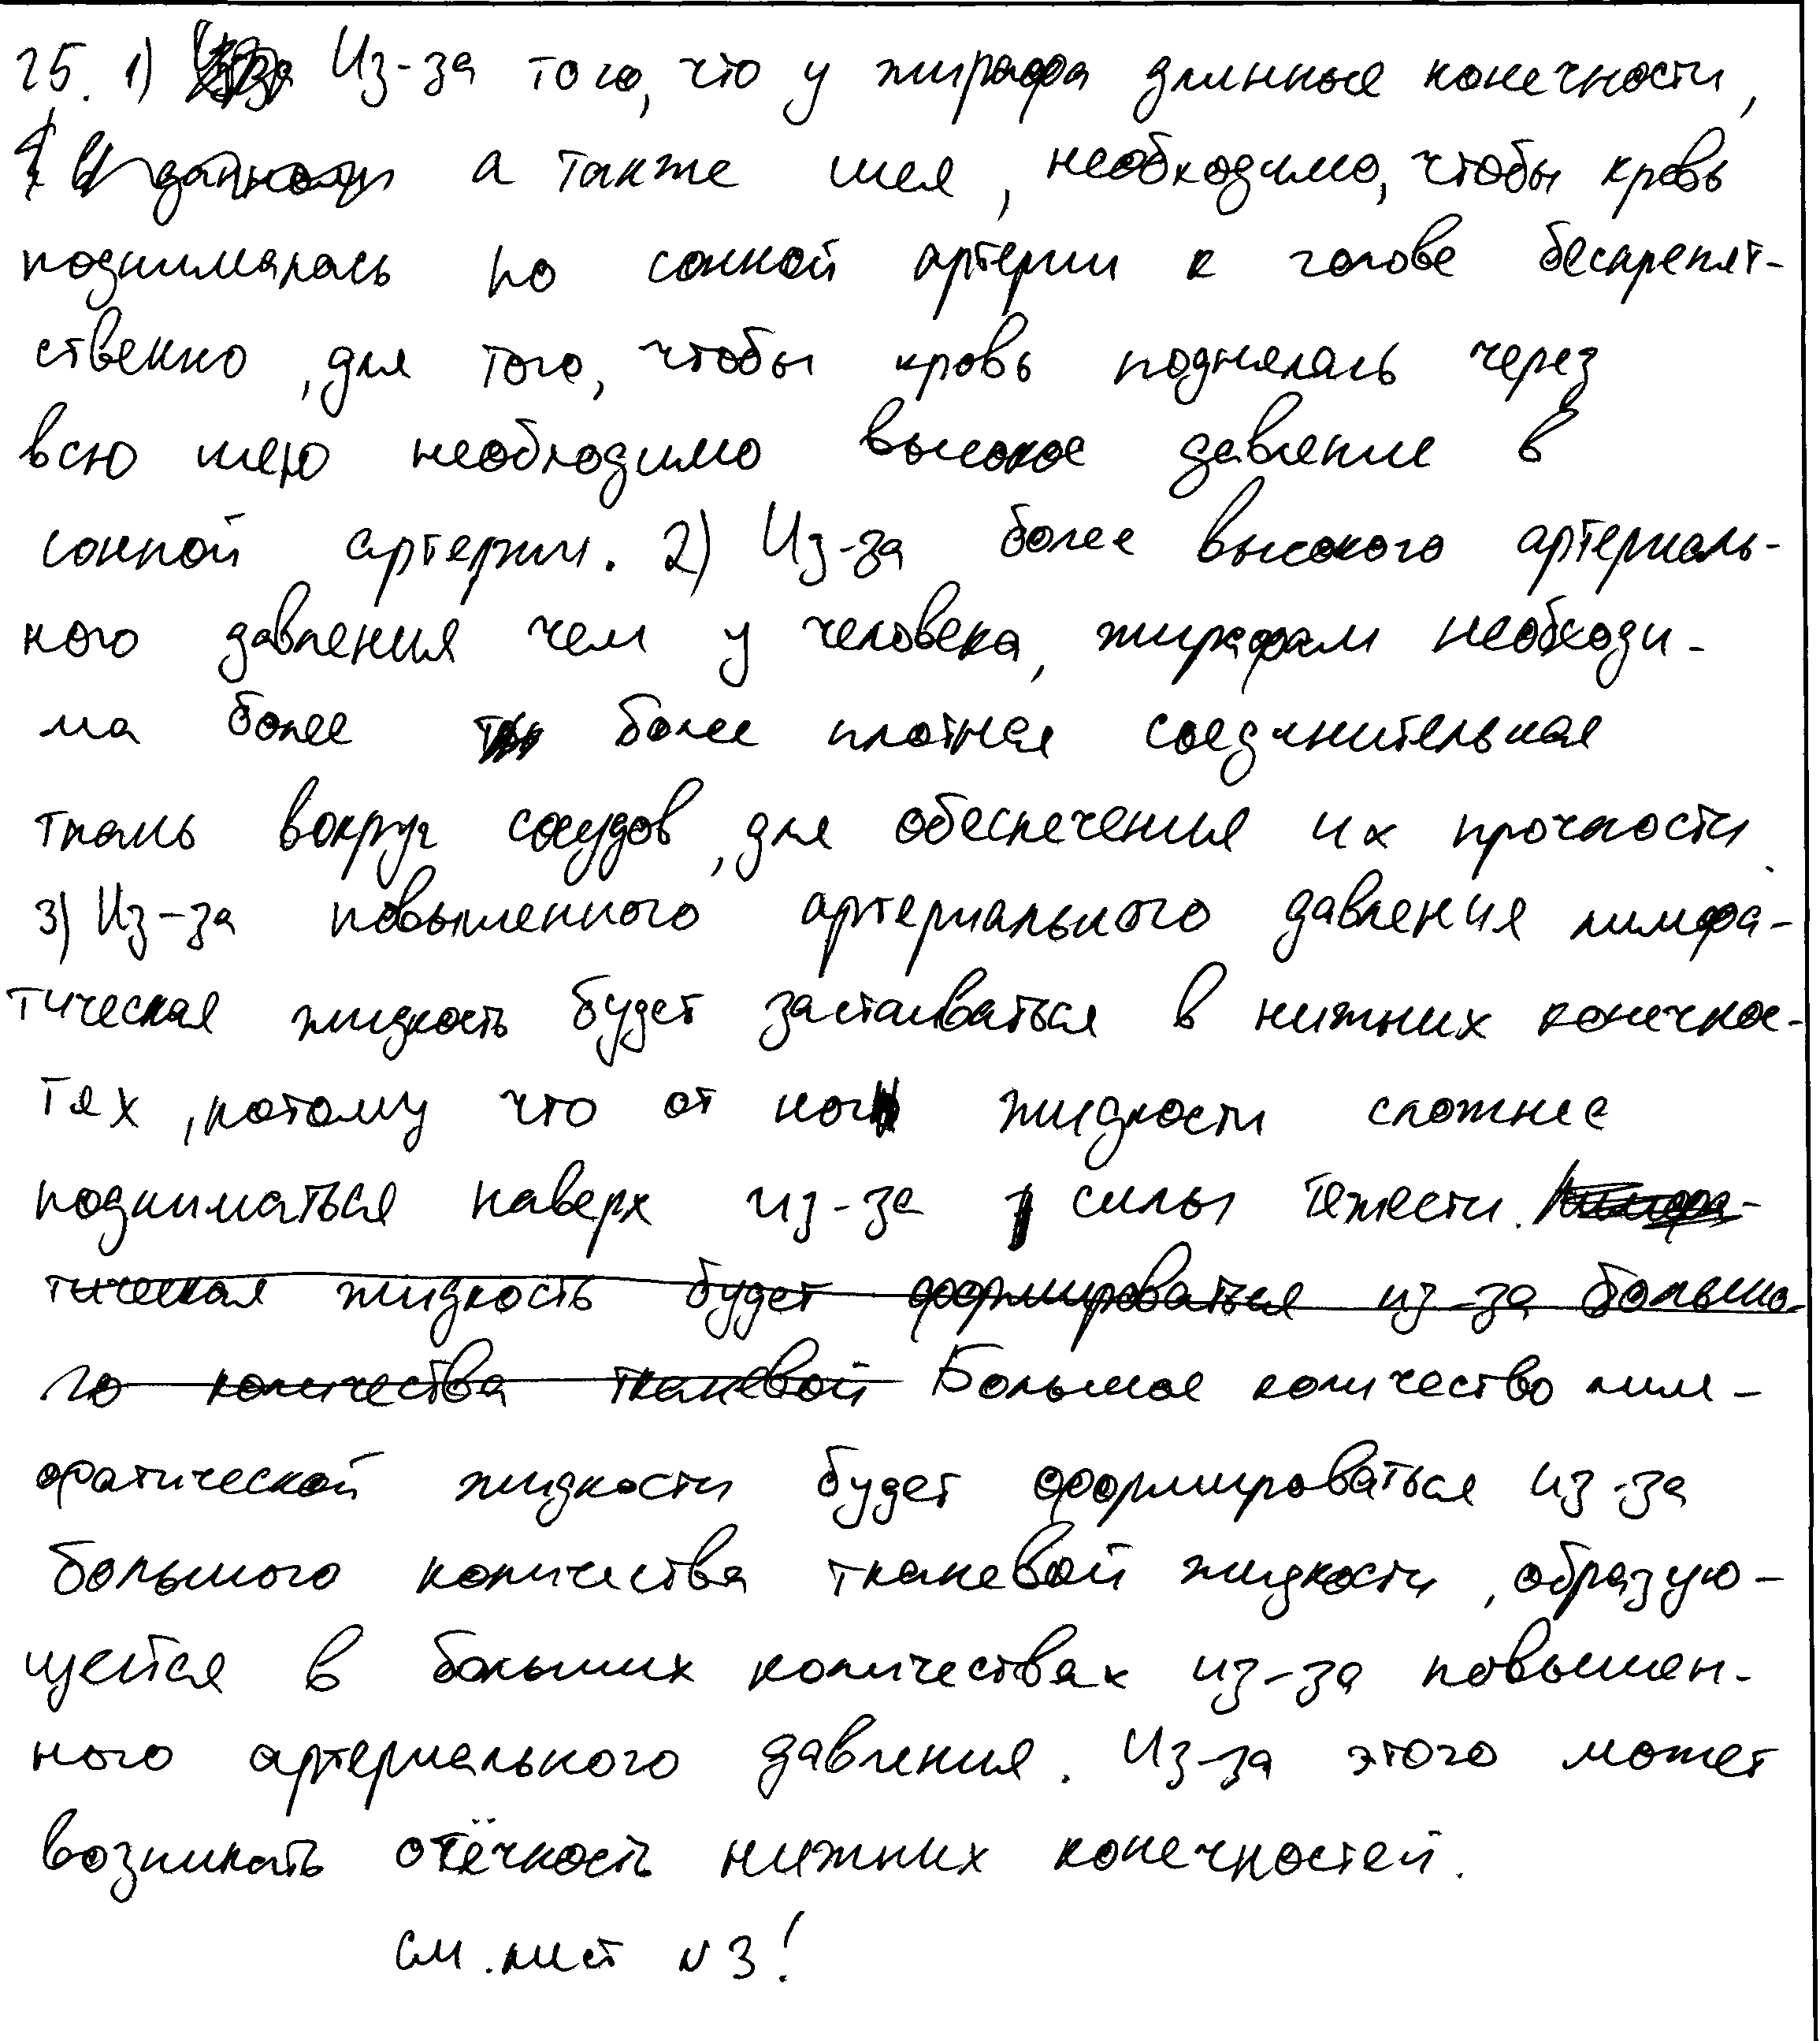 25. 1) Из-за того, что у жирафа длинные конечности,
а также шея, необходимо, чтобы кровь
поднималась по сонной артерии к голове беспрепят-
ственно, для того, чтобы кровь поднялась через
всю шею необходимо высокое давление в
сонной артерии. 2) Из-за более высокого артериаль-
ного давления чем у человека, жирафам необходи-
ма более более плотная соединительная
ткань вокруг сосудов, для обеспечения их прочности.
3) Из-за повышенного артериального давления лимфа-
тическая жидкость будет застаиваться в нижних конечнос-
тях, потому что от ног жидкости сложнее
подниматься наверх из-за силы тяжести. Лимфа-
тическая жидкость будет формироваться из-за большо-
го количества тканевой Большое количество лим-
фатической жидкости будет формироваться из-за
большого количества тканевой жидкости, образую-
щейся в больших количествах из-за повышен-
ного артериального давления. Из-за этого может
возникать отёчность нижних конечностей.
см. лист №3!